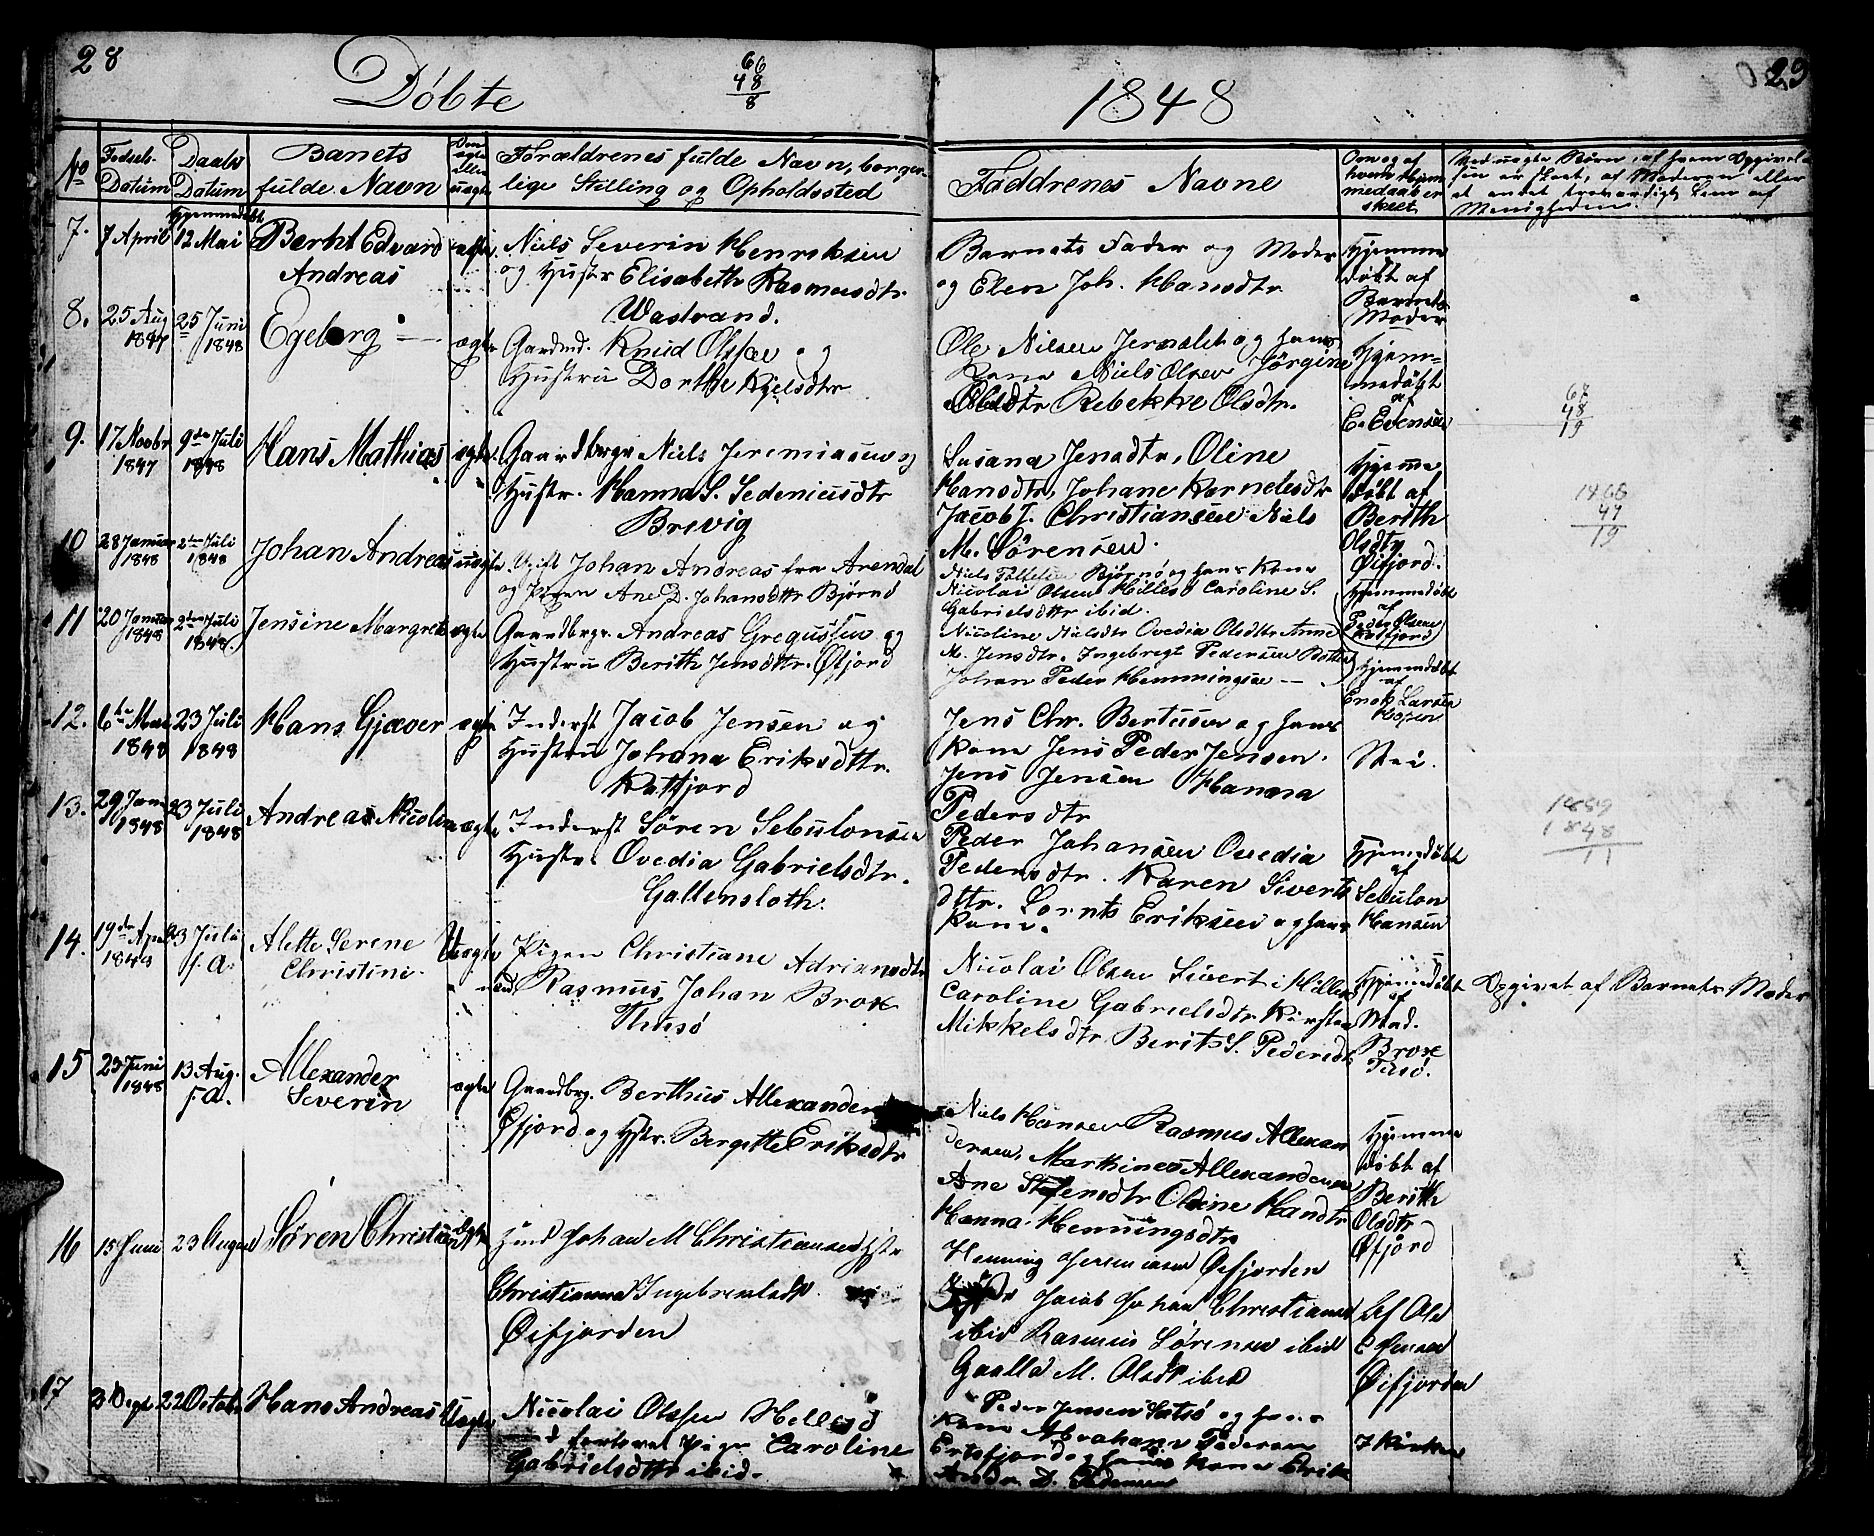 28
Döbte
66
48
8
1848
29
No
Fødsels-
Datum
Daabs
Datum
Banets
fulde Navn
Om
ægte
eller
uægte
Forældrenes fulde Navn, borger-
lige Stilling og Opholdssted
Faddrenes Navne
Om og af
hvem Hjem
medaab er
skeet
Ved uægte Børn, af hvem Opgivel
sen er skeet, af Moderen eller
et andet troværdigt Lem af
Menigheden.
7.
7 April
Hjemmedøbt
12 Mai
Berht Edvard
Andreas
ægte
Niels Severin Henriksen
og Hustr Elisabeth Rasmusdtr.
Wastrand.
Barnets Fader og Moder
og Elen Joh. Hansdtr
Hjemme
døbt af
Barnets
Moder
8.
25 Aug
1847
25 Juni
1848
Egeborg
ægte
Gardmd. Knud Olsen og
Hustru Dorthe Kjelsdtr
Ole Nielsen Jernslet og hans
Kone Niels Olsen Jörgine
Olsdtr Rebekke Olsdtr.
Hjem-
medøbt
af
E. Evensen
67
48
19
9.
17 Novbr
1847
9de Juli
1848
Hans Mathias
ægte
Gaardbrgr Niels Jeremiasen og
Hustr. Hanna S. Sedeniusdtr
Brevig
Susana Jensdtr, Oline
Hansdtr, Johane Kornelesdtr
Jacob J. Christiansen Niels
M. Sörensen.
Hjemme
døbt af
Berith
Olsdtr
Øifjord.
1866
47
19
10
28 Januar
1848
2den Juli
1848
Johan Andreas
uægte
Ugift Johan Andreas fra Arendal
og Pigen Ane D. Johansdtr Bjørnö
Niels Tollefsen Bjørnö og hans Kone
Nicolai Olsen Hillesö Caroline S.
Gabrielsdttr ibid.
Hjemmedøbt
af
Peder Olsen
Katfjord
11
20 Januar
1848
2den Juli
1848.
Jensine Margrete
ægte
Gaardbrgr. Andreas Gregussen og
Hustru Berith Jensdttr. Øfjord
Nicoline Nielsdtr Ovedia Olsdtr Anne
M. Jensdtr. Ingebregt Pedersen
Johan Peder Hemmingsen
Hjemmedöbt
af
Enok Larsen
12.
6te Mai
1848
23 Juli
1848
Hans Gjæver
ægte
Inderst Jacob Jensen og
Hustru Johana Eriksdttr.
Kattfjord
Jens Chr. Bertusen og hans
Kone Jens Peder Jensen.
Jens Jensen Hanna
Pedersdtr
Nei.
13.
29 Janu
1848
23 Juli
1848
Andreas Nicolai
ægte
Inderst Sören Sebulonsen
Hustr. Ovedia Gabrielsdtr.
Galtensloth.
Peder Johansen Ovedia
Pedersdtr. Karen Siverts
dttr. Lornts Eriksen og hans
Kone.
Hjemmedöbt
af
Sebulon
Hansen
1859
1848
11
14.
19de April
1848
23 Juli
f. a.
Alette Serene
Christine
Uægte
Pigen Christiane Adriansdtr
Rasmus Johan Brox
Tussö
Nicolai Olsen Sivert i Hillesö
Caroline Gabrielsdtr Kirsten
Mikkelsdtr Berit S. Pedersdtr
Hjemmedöbt
af
Mad.
Brox
Tusö.
Opgivet af Barnets Moder
15
23 Juni
1848
13 Aug.
f. a.
Allexander
Severin
ægte
Gaardbrg. Berthus Allexander
Øfjord og Hstr. Bergitte Eriksdtr
Niels Hansen Rasmus Allexan
dersen, Marthines Allexandersen
Ane Stefensdtr Oline Handtr
Hanna Henningsdtr
Hjemme
døbt af
Berith
Olsdtr
Øfjord
16
15 Juni
23 August
Søren Christian
Ægte
Jnd Johan M Christiansen Hstr
Christianna Ingebrecktsdtr
Øifjorden
Henning Jeremiasen Øifjorden
Jacob Johan Christiansen
ibid Rasmus Sörensen ibid
M. Olsdtr ibid
Lef Ole
Evensen
Øifjorden
17
3 Sept
22 Octobr
Hans Andreas
Uægte
Nicolai Olssen Hellesö
forlovet Pige Caroline
Gabrielsdttr ibid.
Peder Jensen og hans
Kone Abraham Pedersen
Ersfjord og hans Kone Erik
Andr. D. Pedersen
I Kirken